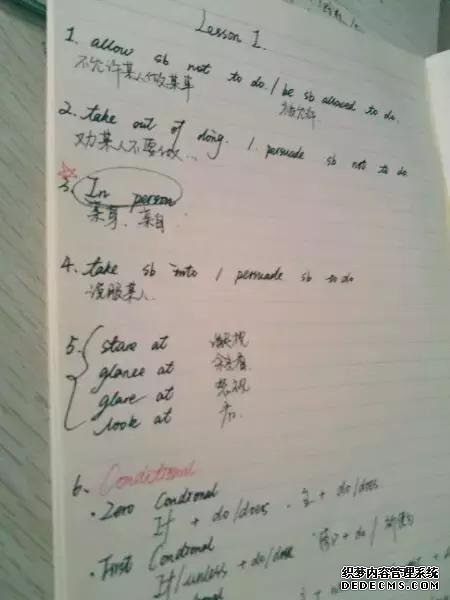 Lesson 1.
1. allow sb not to do. / be sb allowed to do.
不允许某人做某事 被允许.
2. take out of doing. / persuade sb not to do
劝某人不要做...
3. In person
亲身、亲自
4. take sb into / persuade sb to do
说服某人.
5. stare at 凝视
glance at
glare at 怒视
look at 看
6. Conditional
· Zero Condional
If + do/does . 主 + do/does
· First Condional
If/unless + do/dose + do /
织梦内容管理系统
DEDECMS.COM